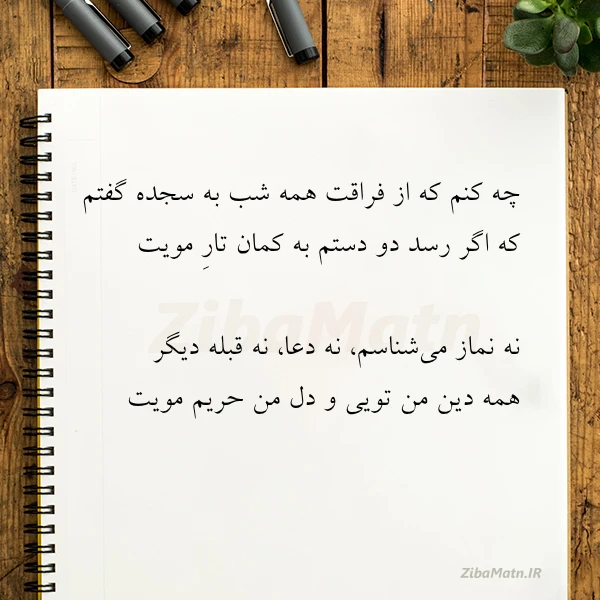 چه کنم که از فراقت همه شب به سجده گفتم
که اگر رسد دو دستم به کمان تارِ مویت
نه نماز می‌شناسم، نه دعا، نه قبله دیگر
همه دین من تویی و دل من حریم مویت
ZibaMatn
ZibaMatn.IR